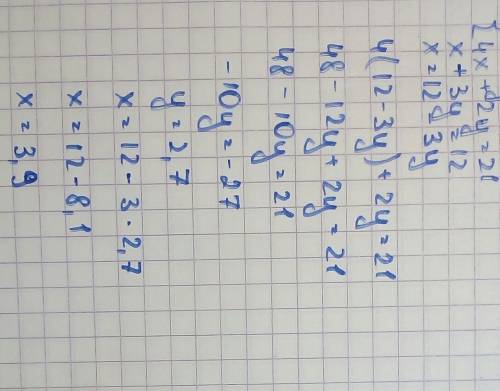 { 4x + 2y = 21
x + 3y = 12
x = 12 - 3y
4(12 - 3y) + 2y = 21
48 - 12y + 2y = 21
48 - 10y = 21
-10y = -27
y = 2,7
x = 12 - 3 · 2,7
x = 12 - 8,1
x = 3,9